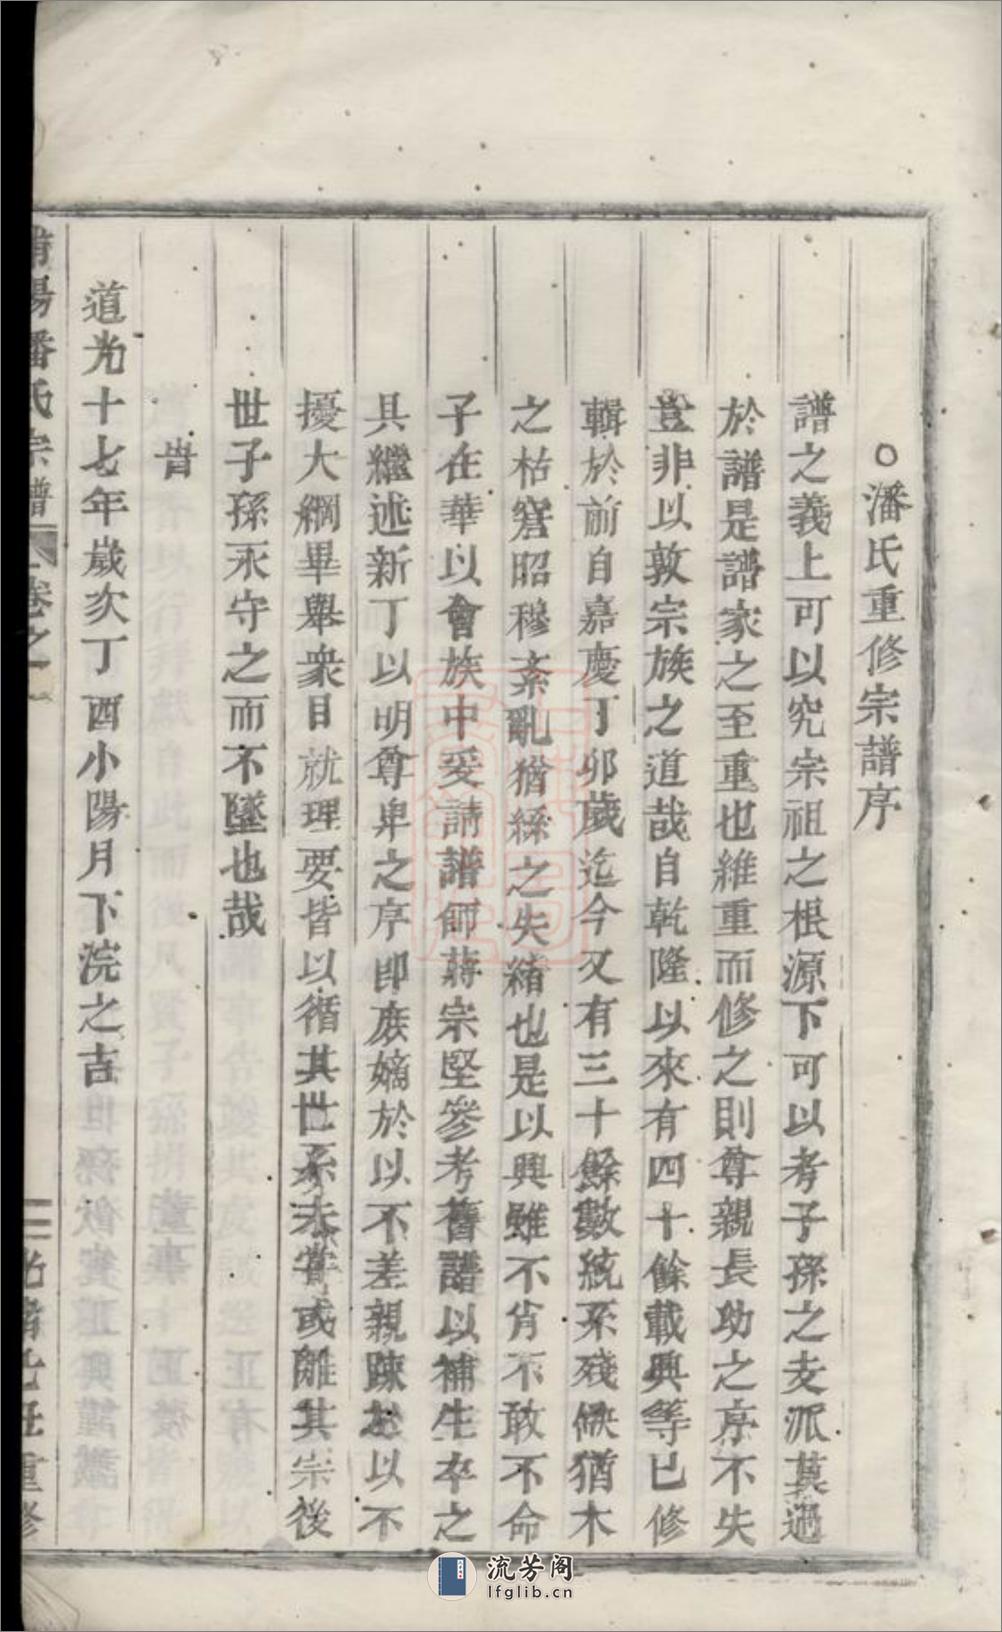 ○潘氏重修宗譜序
譜之義上可以究宗祖之根源下可以考子孫之支派莫過
於譜是譜家之至重也維重而修之則尊親長幼之序不失
豈非以敦宗族之道哉自乾隆以來有四十餘載興等已修
輯於前自嘉慶丁卯歲迄今又有三十餘數統系殘缺猶木
之枯窘昭穆紊亂猶絲之失緒也是以興雖不肖不敢不命
子在華以會族中爰請譜師蔣宗堅參考舊譜以補生卒之
具繼述新丁以明尊卑之序即庶嫡於以不差親疎於以不
擾大綱畢舉衆目就理要皆以循其世系未嘗或離其宗後
世子孫永守之而不墜也哉
旹
道光十七年歲次丁酉小陽月下浣之吉
陽潘氏宗譜 卷之一 光緒 重修
流芳阁
lfglib.cn